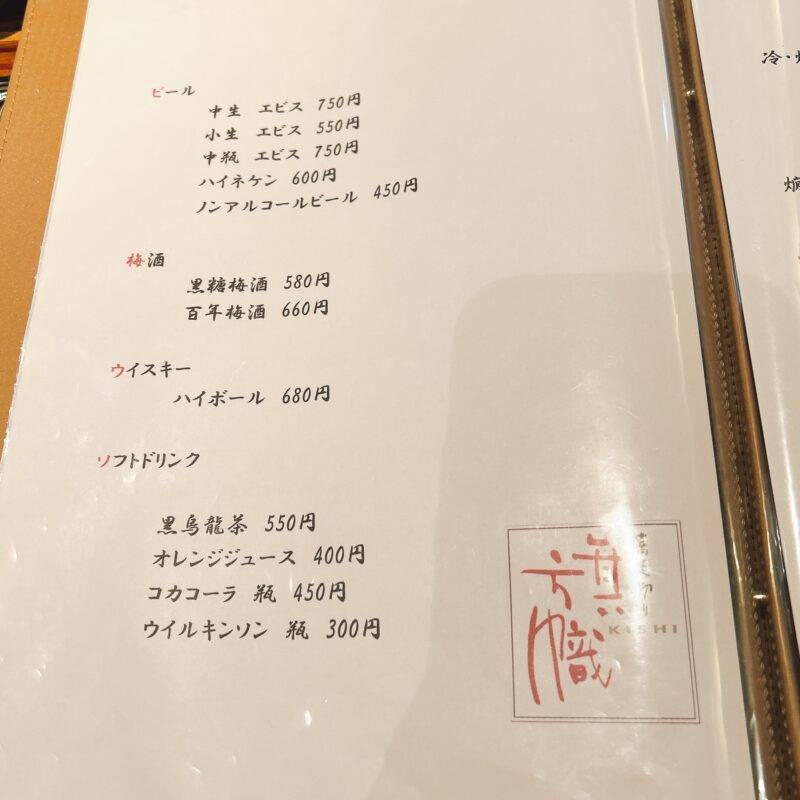 ビール
中生 エビス 750円
小生 エビス 550円
中瓶 エビス 750円
ハイネケン 600円
ノンアルコールビール 450円
梅酒
黒糖梅酒 580円
百年梅酒 660円
ウイスキー
ハイボール 680円
ソフトドリンク
黒烏龍茶 550円
オレンジジュース 400円
コカコーラ 瓶 450円
ウイルキンソン 瓶 300円
旗幟
KISHI
冷・